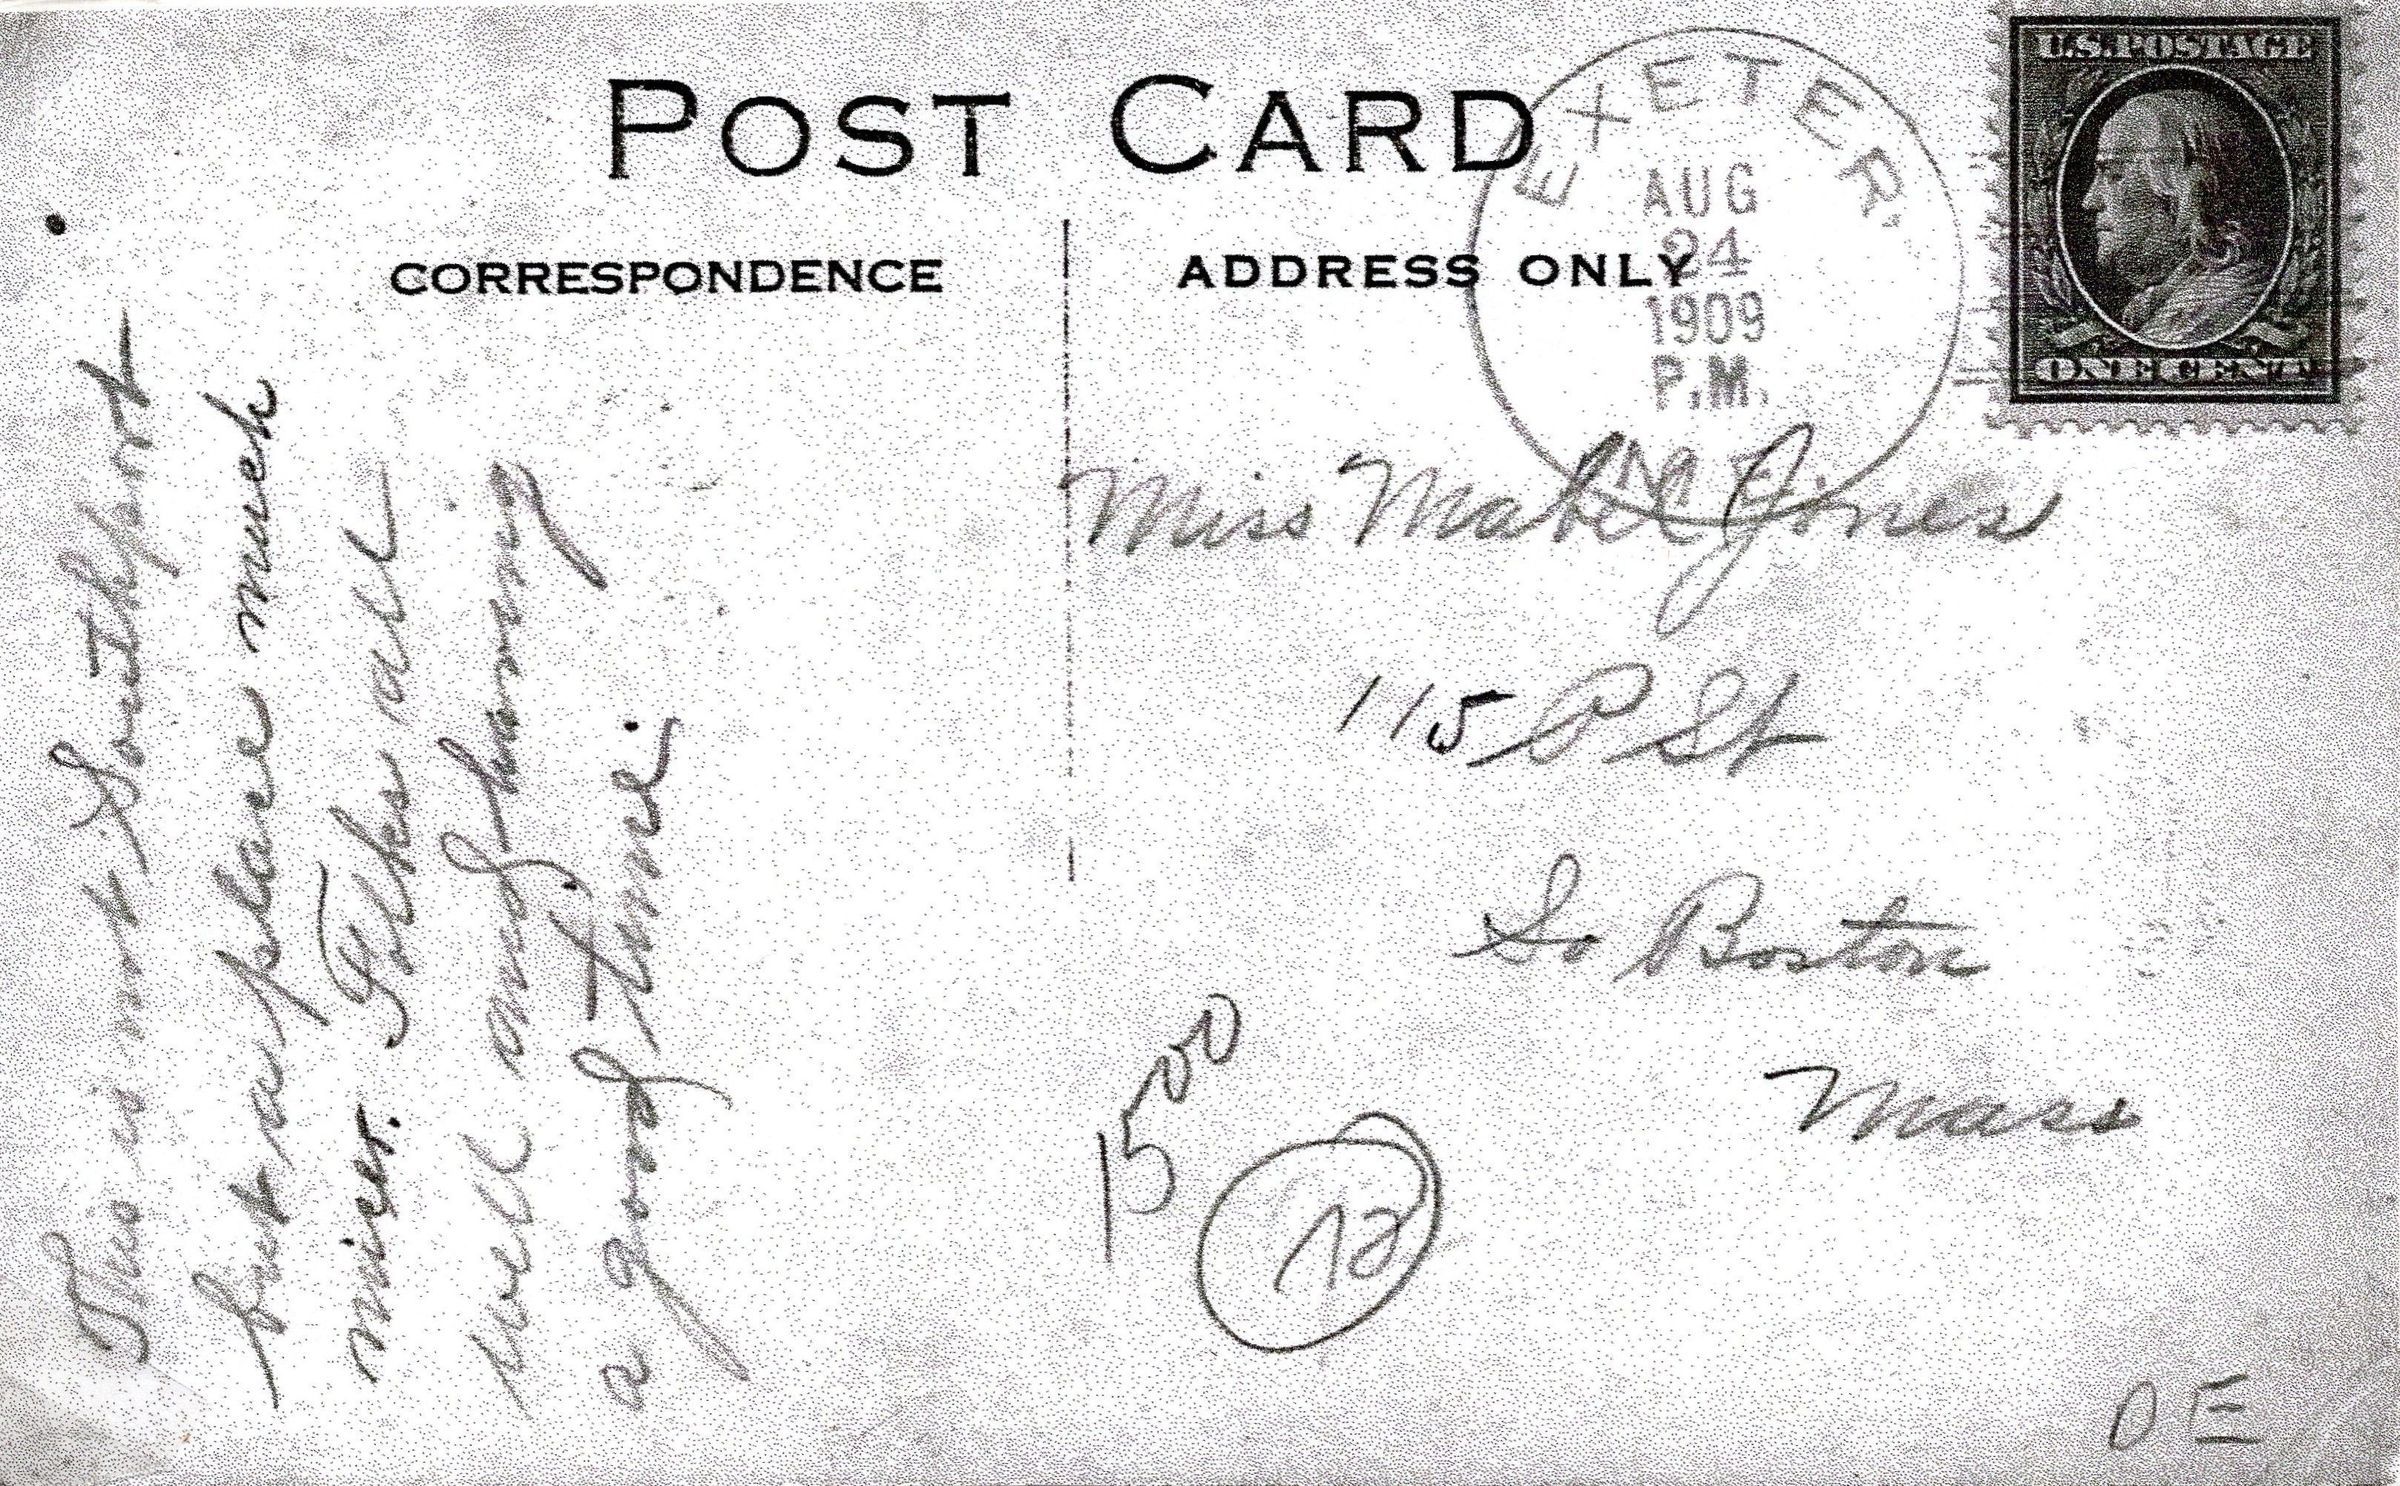 POST CARD
CORRESPONDENCE
ADDRESS ONLY
EXETER,
AUG
24
1909
P.M.
ME.
U.S. POSTAGE
ONE CENT
This is not Southport
but a place much
nicer. Folks all
well and having
a good time.
Miss Mabel Jones
115 P St
So Boston
Mass
15 00
12
D E